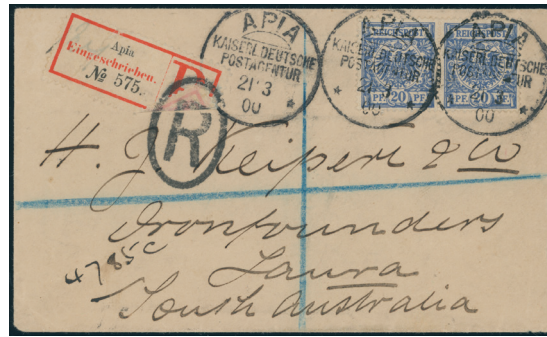 Apia
Eingeschrieben.
№ 575.
R
APIA
KAISERL. DEUTSCHE
POSTAGENTUR
21 3
00
APIA
KAISERL. DEUTSCHE
POSTAGENTUR
21 3
00
APIA
KAISERL. DEUTSCHE
POSTAGENTUR
21 3
00
REICHSPOST
PF 20 PF
REICHSPOST
20
R
H. J. Keipert & Co
Ironfounders
Laura
South Australia
4785C